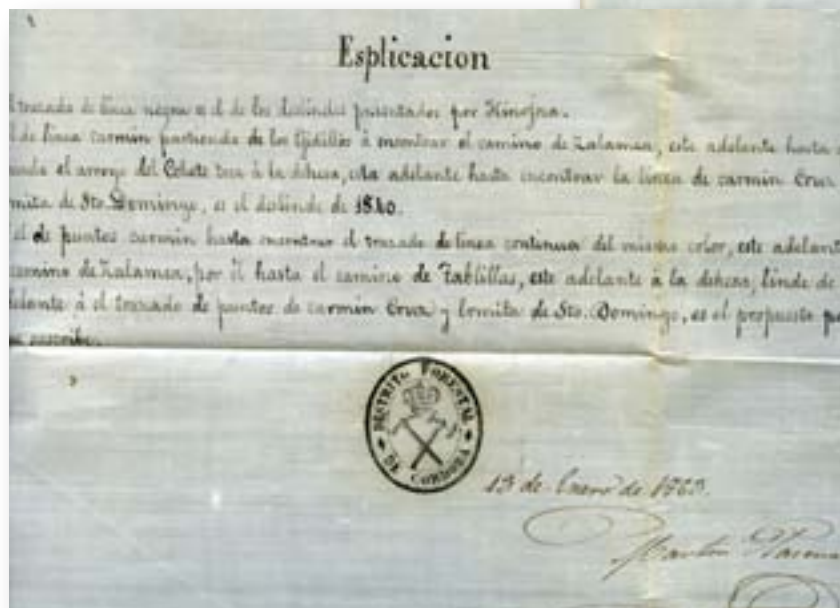 Esplicacion
trazado de linea negra es el de los deslindes presentados por Hinojosa.
de linea carmin partiendo de los Ejidillos á encontrar el camino de Zalamea, este adelante hasta
el arroyo del Cohete toca á la dehesa, esta adelante hasta encontrar la linea de carmin Cruz
mita de Sto. Domingo, es el deslinde de 1840.
el de puntos carmin hasta encontrar el trazado de linea continua del mismo color, este adelant
camino de Zalamea, por él hasta el camino de Tablillas, este adelante á la dehesa, linde de
elante á el trazado de puntos de carmin Cruz y lomita de Sto. Domingo, es el propuesto p
suscribe.
DISTRITO FORESTAL
DE CORDOBA
13 de Enero de